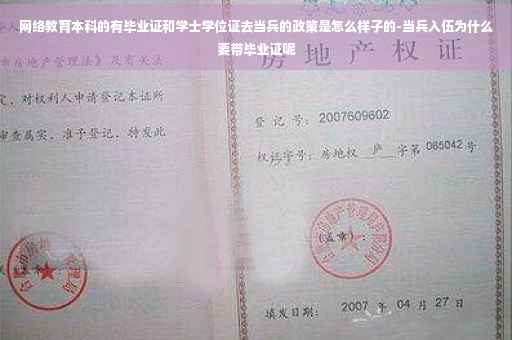 网络教育本科的有毕业证和学士学位证去当兵的政策是怎么样子的-当兵入伍为什么
要带毕业证呢
房地产权证
市房地产管理法》及有关法
定，对权利人申请登记本证所
审查属实，准予登记，特发此
登记号：2007609602
权证字号：房地权 庐 字第 085042 号
（盖章）：
填发日期：2007 年 04 月 27 日